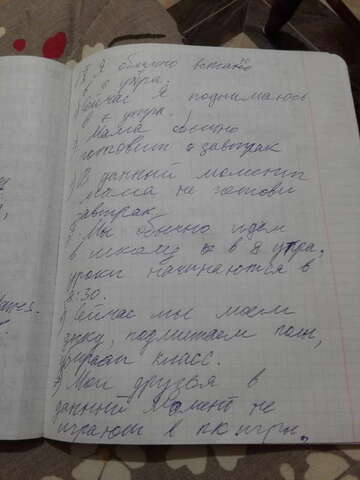 1) Я обычно встаю
в 6 утра.
2) Сейчас я поднимаюсь
в 7 утра.
3) Мама обычно
готовит завтрак
4) В данный момент
мама не готови
завтрак
5) Мы обычно идем
в школу в 8 утра,
уроки начинаются в
8:30.
6) Сейчас мы моем
доску, подметаем полы,
убираем класс.
7) Мои друзья в
данный момент не
играют в пк игры.